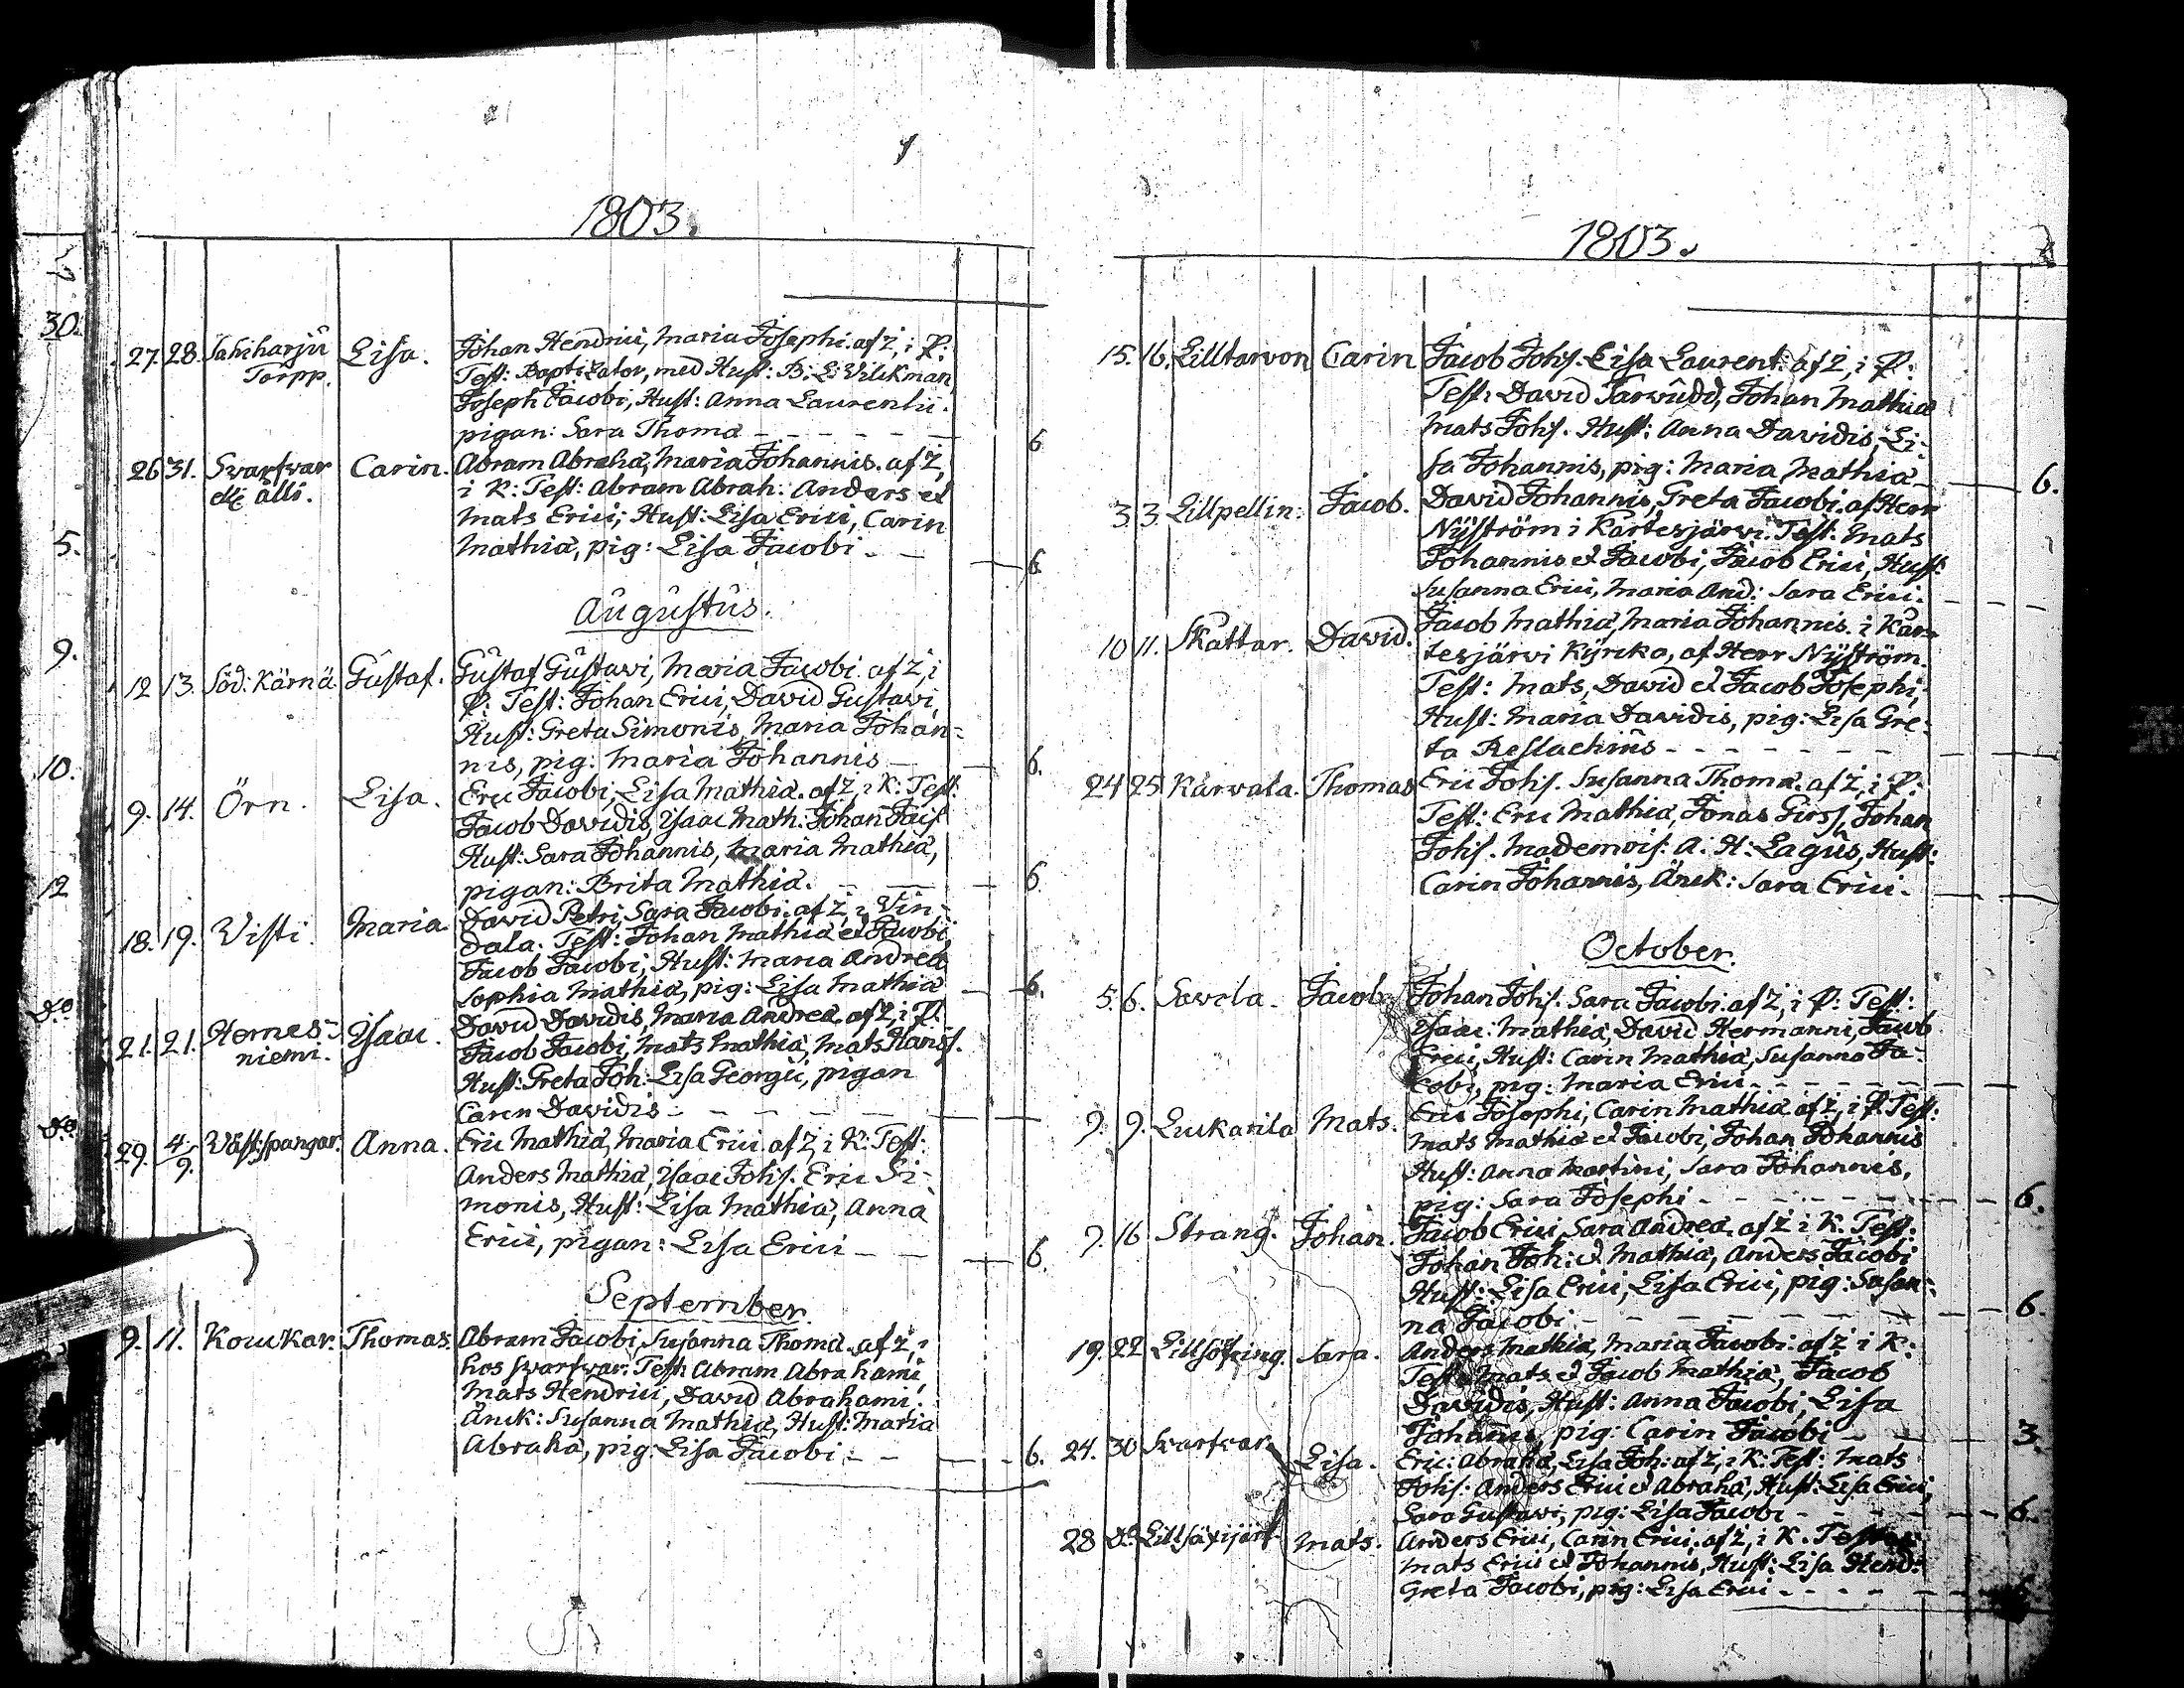 1803.
27. 28. Lisa. Johan Hendrici, Maria Josephi. af Z, i P:
Torpp. Test: Baptizator, med Hust: B: L: Wilckman
Joseph Jacobi, Hust: Anna Laurentii.
pigan: Sara Thomæ - - - - - - 6
26 31. Swartwar Carin. Abram Abrahā, Maria Johannis. af Z,
i K: Test: Abram Abrah: Anders et
Mats Erici; Hust: Lisa Erici, Carin
Mathiæ, pig: Lisa Jacobi - - 6.
Augustus.
12 13. Söd: Kärnä Gustaf. Gustaf Gustavi, Maria Jacobi. af Z, i
P: Test: Johan Erici, David Gustavi,
Hust: Greta Simonis, Maria Johan-
nis, pig: Maria Johannis - - 6.
9. 14. Örn. Lisa. Eric Jacobi, Lisa Mathiæ. af Z, i K: Test:
Jacob Davidis, Isaac Math: Johan
Hust: Sara Johannis, Maria Mathiæ,
pigan: Brita Mathiæ. - - - 6
18. 19. Wisti. Maria. David Petri, Sara Jacobi. af Z, i Vin-
dala. Test: Johan Mathiæ et Jacobi,
Jacob Jacobi, Hust: Maria Andreæ
Sophia Mathiæ, pig: Lisa Mathiæ - 6.
21. 21. Hernes- Isaac. David Davidis, Maria Andreæ. af Z, i P:
niemi. Jacob Jacobi, Mats Mathiæ, Mats Hanss.
Hust: Greta Joh: Lisa Georgii, pigan
Caren Davidis - - - - - -
29. 4/9. Wäst:spangar. Anna. Eric Mathiæ, Maria Erici. af Z, i K: Test:
Anders Mathiæ, Isaac Johs. Eric Si-
monis, Hust: Lisa Mathiæ, Anna
Erici, pigan: Lisa Erici - - 6.
September.
9. 11. Kouckar. Thomas. Abram Jacobi, Susanna Thomæ. af Z, i
hos Swartwar. Test: Abram Abrahami,
Mats Hendrici, David Abrahami.
Änck: Susanna Mathiæ, Hust: Maria
Abrahā, pig: Lisa Jacobi - - 6.
1803.
15. 16. Lilltarvon Carin Jacob Johs. Lisa Laurent: af Z, i P:
Test: David Tarvudd, Johan Mathiæ
Mats Johs. Hust: Anna Davidis, Li-
sa Johannis, pig: Maria Mathiæ - 6.
3. 3. Lillpellin: Jacob. David Johannis, Greta Jacobi. af Herr
Nyström i Kårtesjärvi. Test: Mats
Johannis et Jacobi, Jacob Erici, Hust:
Susanna Erici, Maria And: Sara Erici.
10 11. Skattar. David. Jacob Mathiæ, Maria Johannis. i Kår-
tesjärvi Kyrcka, af Herr Nyström.
Test: Mats, David et Jacob Josephi,
Hust: Maria Davidis, pig: Lisa Gre-
ta - - - - - -
24 25. Kärvala. Thomas Eric Johs. Susanna Thomæ. af Z, i P:
Test: Eric Mathiæ, Jonas Girss, Johan
Johs. Mademois: A: H: Lagus, Hust:
Carin Johannis, Änck: Sara Erici.
October.
5. 6. Savela. Jacob. Johan Johs. Sara Jacobi. af Z, i P: Test:
Isaac: Mathiæ, David Hermanni, Jacob
Erici, Hust: Carin Mathiæ, Susanna Ja-
cobi, pig: Maria Erici - - - - -
9. 9. Luckarila Mats. Eric Josephi, Carin Mathiæ. af Z, i P. Test:
Mats Mathiæ et Jacobi, Johan Johannis
Hust: Anna Martini, Sara Johannis,
pig: Sara Josephi - - - - - 6.
9. 16 Strang. Johan. Jacob Erici, Sara Andreæ. af Z i K. Test:
Johan Joh: et Mathiæ, Anders Jacobi
Hust: Lisa Erici, Lisa Erici, pig: Susan-
na Jacobi - - - - - 6.
19. 22 Sara. Anders Mathiæ, Maria Jacobi. af Z i K:
Test: Mats et Jacob Mathiæ, Jacob
Davidis, Hust: Anna Jacobi, Lisa
pig: Carin Jacobi - - 3.
24. 30 Swartvar Lisa. Eric: Abrahā, Lisa Joh: af Z, i K: Test: Mats
Johs: Anders Erici et Abrahā, Hust: Lisa Erici,
Sara Gustavi, pig: Lisa Jacobi - - - 6.
28 Do Mats. Anders Erici, Carin Erici. af Z, i K.
Mats Erici et Johannis, Hust: Lisa Hend:
Greta Jacobi, pig: Lisa Erici - - - -